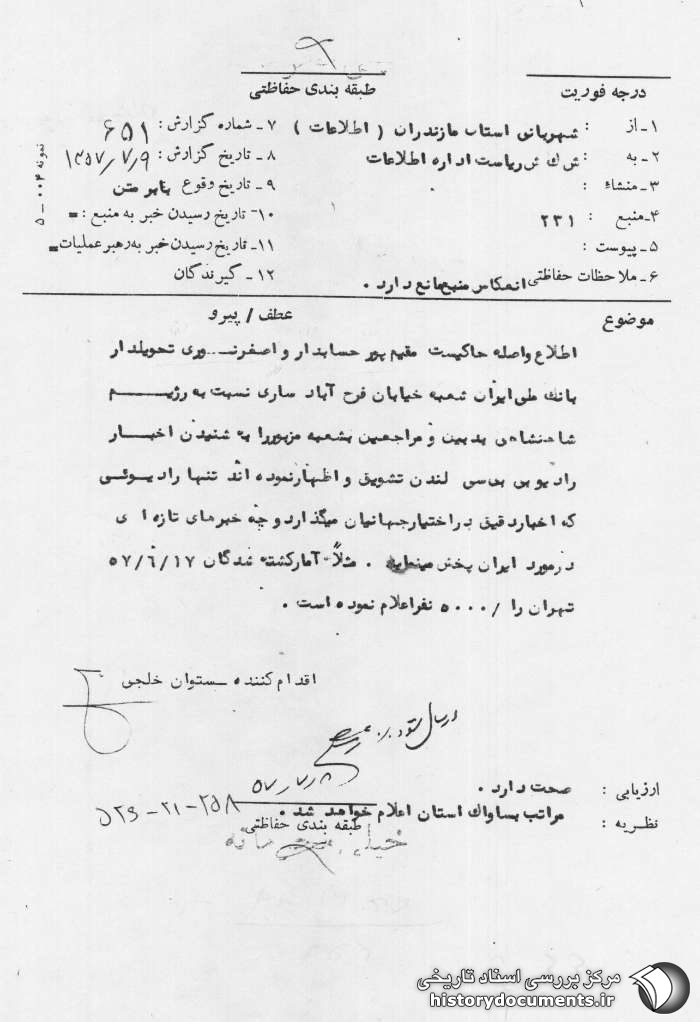 درجه فوریت
طبقه بندی حفاظتی
۱ـ از : شهربانی استان مازندران ( اطلاعات )
۷ ـ شماره گزارش : ۶۵۱
۲ـ به : ش ک ش ریاست اداره اطلاعات
۸ ـ تاریخ گزارش : ۱۳۵۷/۷/۹
۳ـ منشاء :
۹ ـ تاریخ وقوع بنابر متن
۴ـ منبع : ۲۳۱
۱۰ـ تاریخ رسیدن خبر به منبع : =
۵ـ پیوست :
۱۱ـ تاریخ رسیدن خبر به رهبر عملیات =
۶ـ ملاحظات حفاظتی انعکاس منبع مانع دارد .
۱۲ـ گیرندگان
نمونه ۰۰۴ ـ ۵
موضوع
عطف / پیرو
اطلاع واصله حاکیست مقیم پور حسابدار و اصغر نـــوری تحویلدار
بانک ملی ایران شعبه خیابان فرح آباد ساری نسبت به رژیـــم
شاهنشاهی بدبین و مراجعین بشعبه مزبور را به شنیدن اخبـــار
رادیو بی بی سی لندن تشویق و اظهار نموده اند تنها رادیـوئی
که اخبار دقیق در اختیار جهانیان میگذارد و چه خبرهای تازه ای
در مورد ایران پخش مینماید . مثلاً آمار کشته شدگان ۵۷/۶/۱۷
تهران را /۵۰۰۰ نفر اعلام نموده است .
اقدام کننده ـ ستوان خلجی
ارسال شود
۵۷/۷/۸
ارزیابی : صحت دارد .
نظریه : مراتب بساواک استان اعلام خواهد شد .
طبقه بندی حفاظتی
خیلی محرمانه
مرکز بررسی اسناد تاریخی
historydocuments.ir